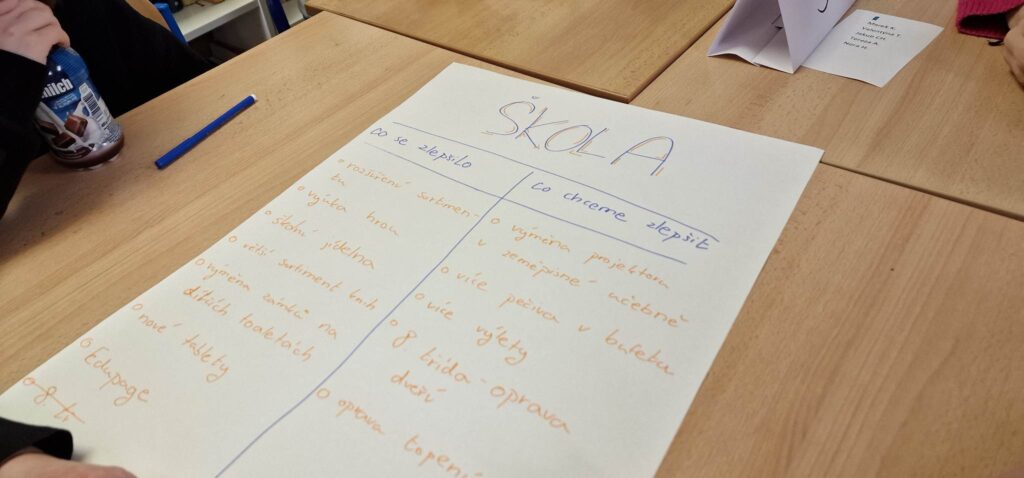 ŠKOLA
co se zlepšilo
o rozšíření sortimen-
tu
o výuka hrou
o školní jídelna
o větší sortiment knih
o výměna zámků na
dívčích toaletách
o nové tablety
o Edupage
o 8 t
co chceme zlepšit
o výměna projektoru
v zeměpisné učebně
o více pečiva v bufetu
o více výlety
o 8 třída - opravca
dveří
o oprava topení
milch
Marek K.
Valentýna T.
Jakub CH.
Tereza A.
Nora H.